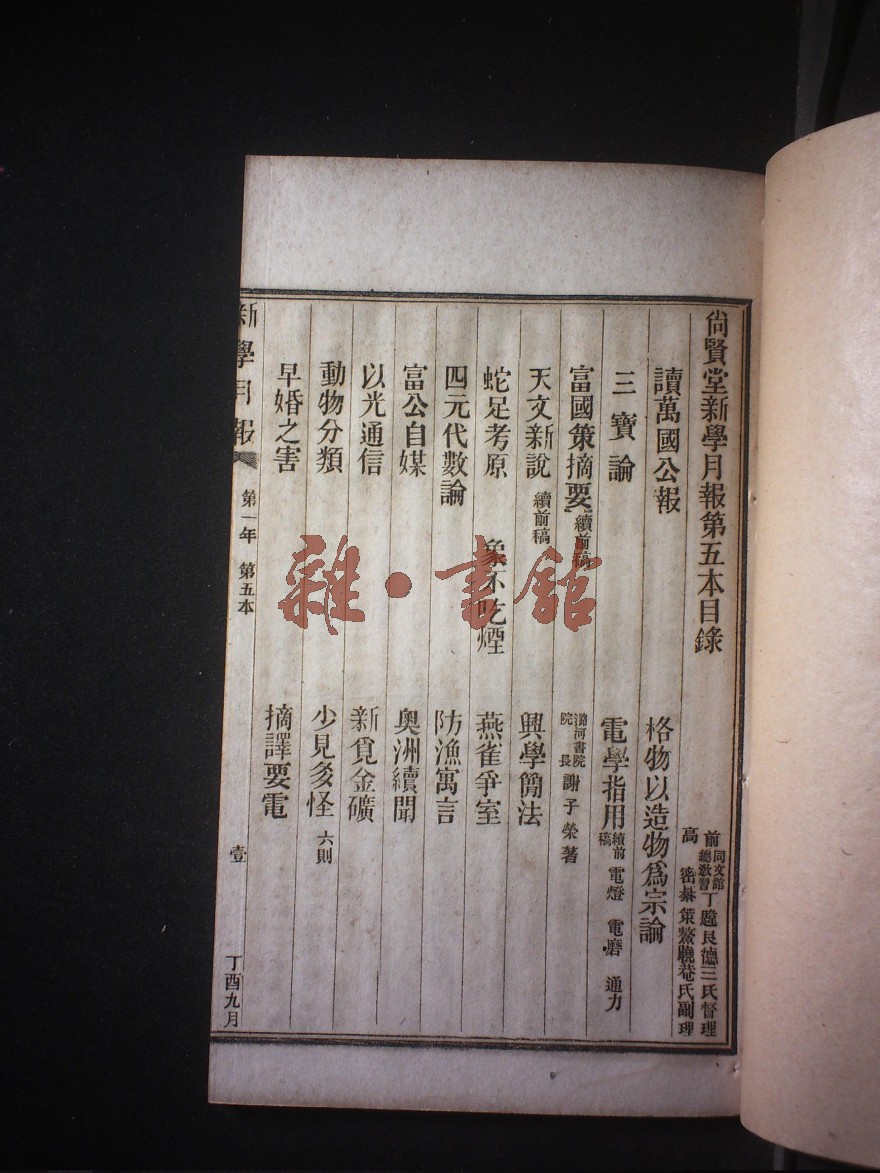 尙賢堂新學月報第五本目錄
前同文館總敎習丁韙良德三氏督理
高 密綦策鰲曉菴氏副理
讀萬國公報 格物以造物爲宗論
三寶論 電學指用續前稿 電燈 電磨 通力
富國策摘要續前稿 潞河書院院長謝子榮著
天文新說 續前稿 興學簡法
蛇足考原 象不吃煙 燕雀爭室
四元代數論 防漁寓言
富公自媒 奧洲續聞
以光通信 新覓金礦
動物分類 少見多怪 六則
早婚之害 摘譯要電
新學月報 第一年 第五本 壹 丁酉九月
雜·書館